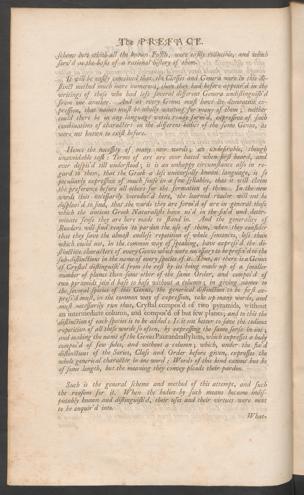 The PREFACE.
scheme here which all the known Fossils, were easily reducible, and which
serv'd as the basis of a rational history of them.
It will be easily conceived that the Classes and Genera were in this di-
stinct method much more numerous, than they had before appear'd in the
writings of those who had less severed different Genera undistinguish'd
from one another. And as every Genus must have its determinate ex-
pression, that names must be wholly wanting for many of them; neither
could there be in any language words ready form'd, expressive of such
combinations of characters in the different bodies of the same Genus, as
were not known to exist before.
Hence the necessity of many new words; an undesirable, though
unavoidable task: Terms of art are ever hated when first heard, and
ever despis'd till understood; it is an unhappy circumstance also in re-
gard to them, that the Greek a less universally known language, is so
peculiarly expressive of much sense in a few syllables, that it will claim
the preference before all others for the formation of them. In the new
words thus necessarily introduc'd here, the learned reader will not be
displeas'd to find, that the words they are form'd of are in general those
which the antient Greek Naturalists have us'd in the same and deter-
minate sense they are here made to stand in. And the generality of
Readers will find reason to pardon the use of them, when they consider
that they save the almost endless repetition of whole sentences, less than
which could not, in the common way of speaking, have express'd the di-
stinctive characters of every Genus which were necessary to be prefix'd to the
sub-distinctions in the names of every species of it. Thus, as there is a Genus
of Crystal distinguish'd from the rest by its being made up of a smaller
number of planes than some other of the same Order, and compos'd of
two pyramids join'd base to base without a column; in giving names to
the several species of this Genus, the general distinction to be first ex-
press'd must, in the common way of expression, take up many words, and
must necessarily run thus, Crystal compos'd of two pyramids, without
an intermediate column, and compos'd of but few planes; and to this the
distinction of each species is to be added: Is it not better to save the tedious
repetition of all these words so often, by expressing the same sense in one;
and making the name of the Genus
compos'd of few sides, and without a column; which, under the fix'd
distinctions of the Series, Class and Order before given, expresses the
whole generical character in one word; Words of this kind cannot but be
of some length, but the meaning they convey pleads their pardon.
Such is the general scheme and method of this attempt, and such
the reasons for it. When the bodies by such means became indis-
putably known and distinguish'd, their uses and their virtues were next
to be enquir'd into.
What-